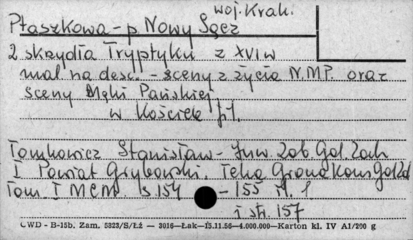 woj. Krak.
Ptaszkowa - p. Nowy Sącz
2 skrzydła Tryptyku z XVI w
mal. na desc. - sceny z życia N.M.P. oraz
sceny Męki Pańskiej
w Kościele fil.
Tomkowicz Stanisław - Inw. Zab. Gal. Zach.
I Powiat Grybowski. Teka Grona Kons Gal Zach
Tom I MCM s 154 - 155 N. 1
i str. 157
CWD - B-15b. Zam. 5323/S/Łż — 3016—Łak—15.11.56—4.000.000—Karton kl. IV A1/200 g